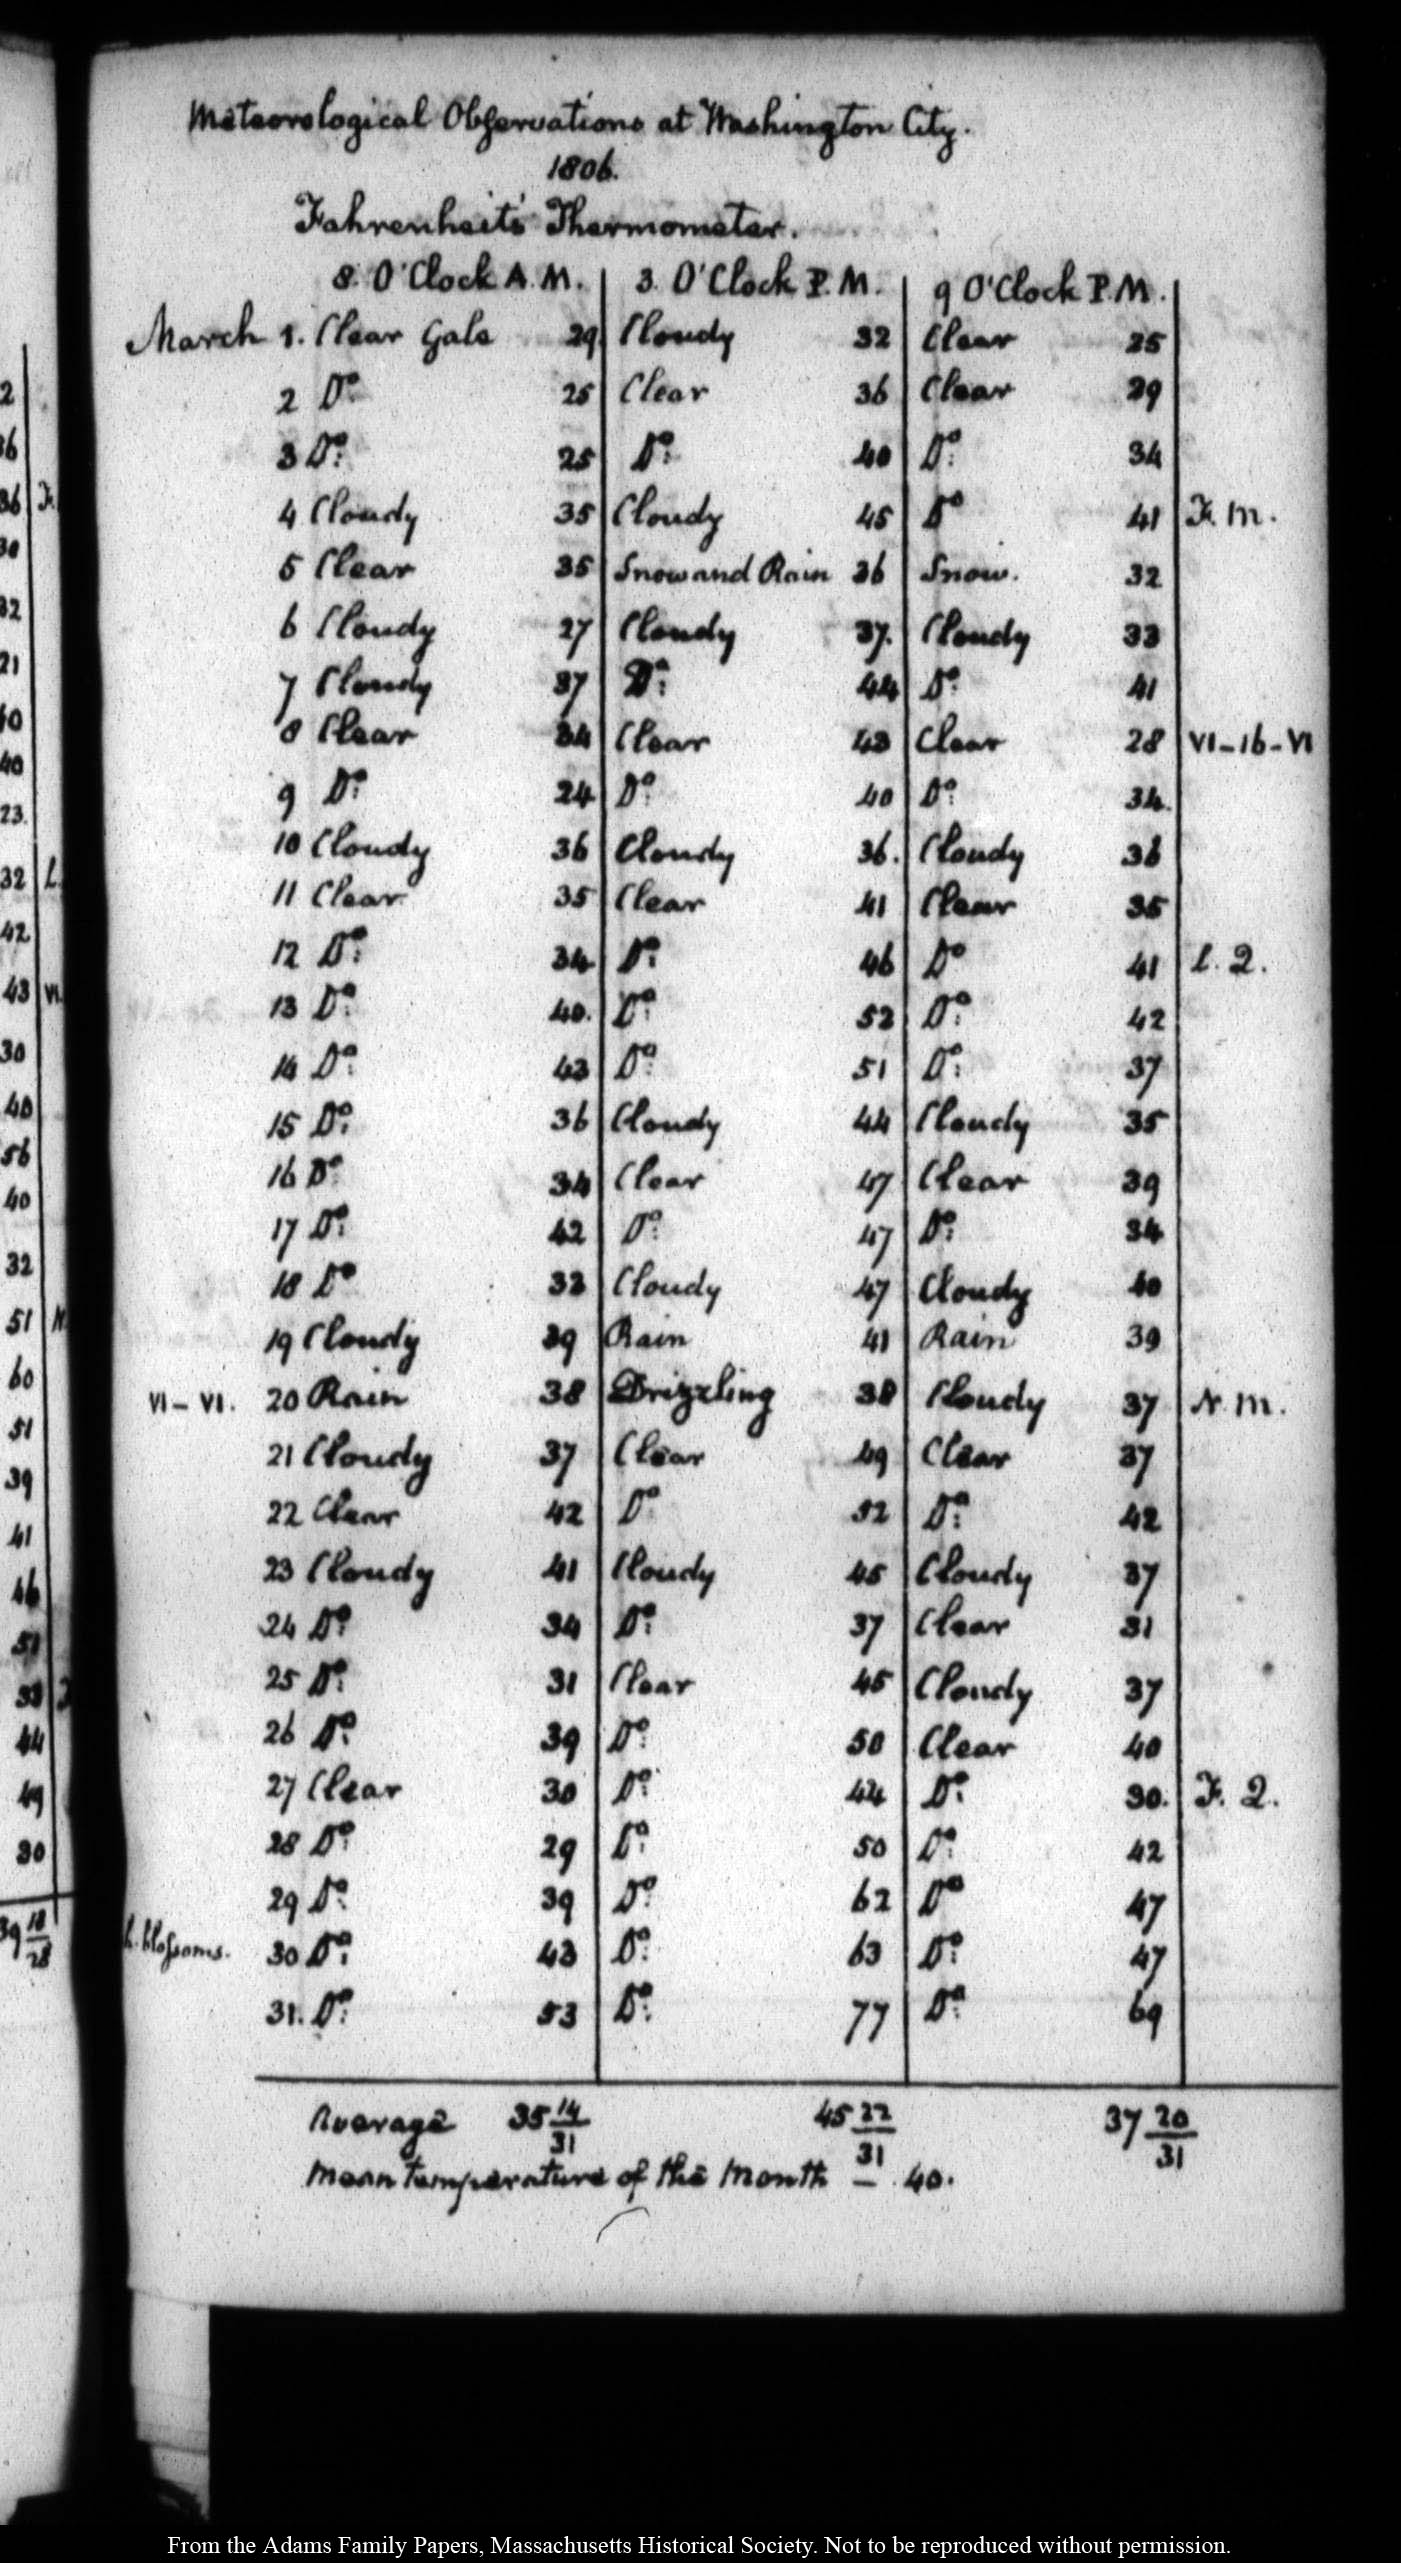 Meteorological Observations at Washington City.
1806.
Fahrenheit's Thermometer.
8. O'Clock A.M. 3. O'Clock P.M. 9 O'Clock P.M.
March 1. Clear Gale 29 Cloudy 32 Clear 25
2 Do 25 Clear 36 Clear 29
3 Do 25 Do 40 Do 34
4 Cloudy 35 Cloudy 45 Do 41 F. M.
5 Clear 35 Snow and Rain 36 Snow. 32
6 Cloudy 27 Cloudy 37. Cloudy 33
7 Cloudy 37 Do 44 Do 41
8 Clear 34 Clear 43 Clear 28 VI-16-VI
9 Do 24 Do 40 Do 34.
10 Cloudy 36 Cloudy 36. Cloudy 36
11 Clear 35 Clear 41 Clear 35
12 Do 34 Do 46 Do 41 L. 2.
13 Do 40. Do 52 Do 42
14 Do 43 Do 51 Do 37
15 Do 36 Cloudy 44 Cloudy 35
16 Do 34 Clear 47 Clear 39
17 Do 42 Do 47 Do 34
18 Do 33 Cloudy 47 Cloudy 40
19 Cloudy 39 Rain 41 Rain 39
VI-VI. 20 Rain 38 Drizzling 38 Cloudy 37 N. M.
21 Cloudy 37 Clear 49 Clear 37
22 Clear 42 Do 52 Do 42
23 Cloudy 41 Cloudy 45 Cloudy 37
24 Do 34 Do 37 Clear 31
25 Do 31 Clear 45 Cloudy 37
26 Do 39 Do 50 Clear 40
27 Clear 30 Do 44 Do 30. F. 2.
28 Do 29 Do 50 Do 42
29 Do 39 Do 62 Do 47
blossoms. 30 Do 43 Do 63 Do 47
31. Do 53 Do 77 Do 69
Average 35 14/31 45 22/31 37 20/31
Mean temperature of the Month — 40.
From the Adams Family Papers, Massachusetts Historical Society. Not to be reproduced without permission.